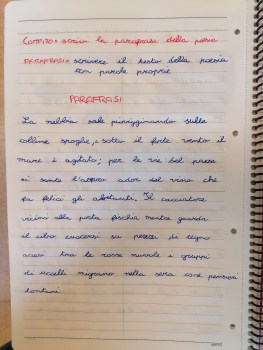 COMPITO: scrivi la parafrasi della poesia
PARAFRASI: scrivere il testo della poesia
con parole proprie
PARAFRASI
La nebbia sale piovigginando sulle
colline spoglie, e sotto il forte vento il
mare è agitato; per le vie del paese
si sente l'aspro odore del vino che
fa felici gli abitanti. Il cacciatore
vicino alla porta fischia mentre guarda
il cibo cuocersi su pezzi di legno
accesi tra le rosse nuvole e gruppi
di uccelli migrano nella sera come pensieri
lontani